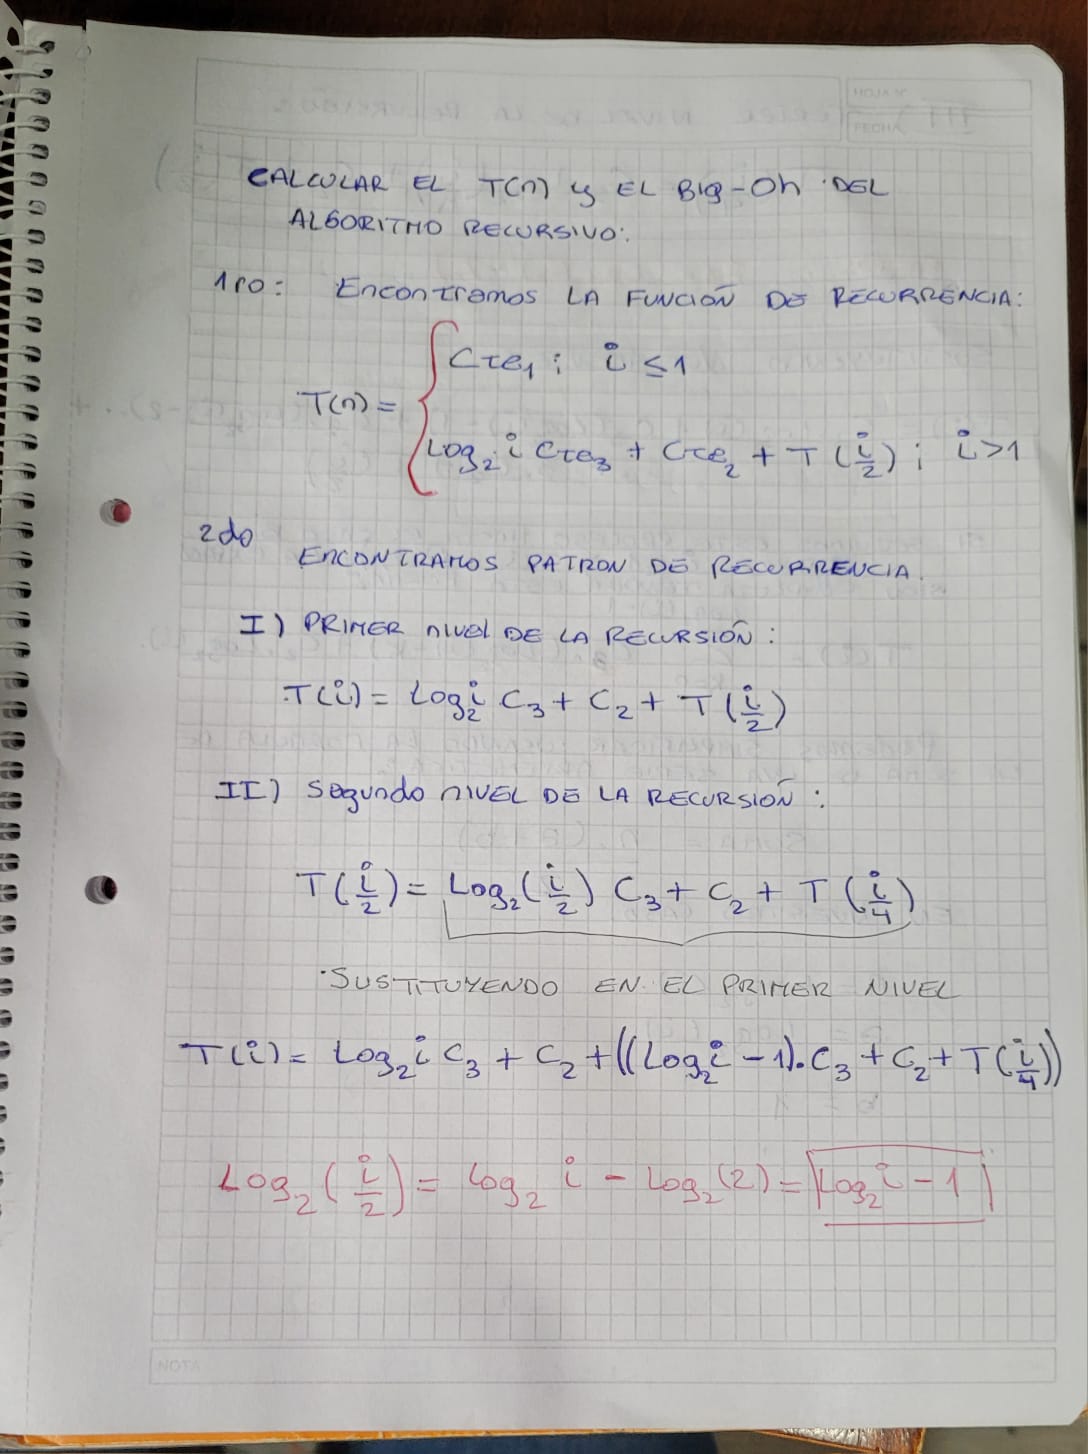 HOJA Nº
FECHA
CALCULAR EL T(n) y EL Big-Oh DEL
ALGORITMO RECURSIVO:
1ro: Encontramos LA FUNCIÓN DE RECURRENCIA:
Cte₁ ; i ≤ 1
T(n) =
Log₂ i Cte₃ + Cte₂ + T(i/2) ; i > 1
2do
ENCONTRAMOS PATRON DE RECURRENCIA.
I) PRIMER nIVEL DE LA RECURSIÓN:
T(i) = Log₂i C₃ + C₂ + T(i/2)
II) Segundo nIVEL DE LA RECURSIÓN:
T(i/2) = Log₂(i/2) C₃ + C₂ + T(i/4)
SUSTITUYENDO EN EL PRIMER NIVEL
T(i) = Log₂i C₃ + C₂ + ((Log₂i - 1).C₃ + C₂ + T(i/4))
Log₂(i/2) = Log₂ i - Log₂(2) = Log₂i - 1
NOTA